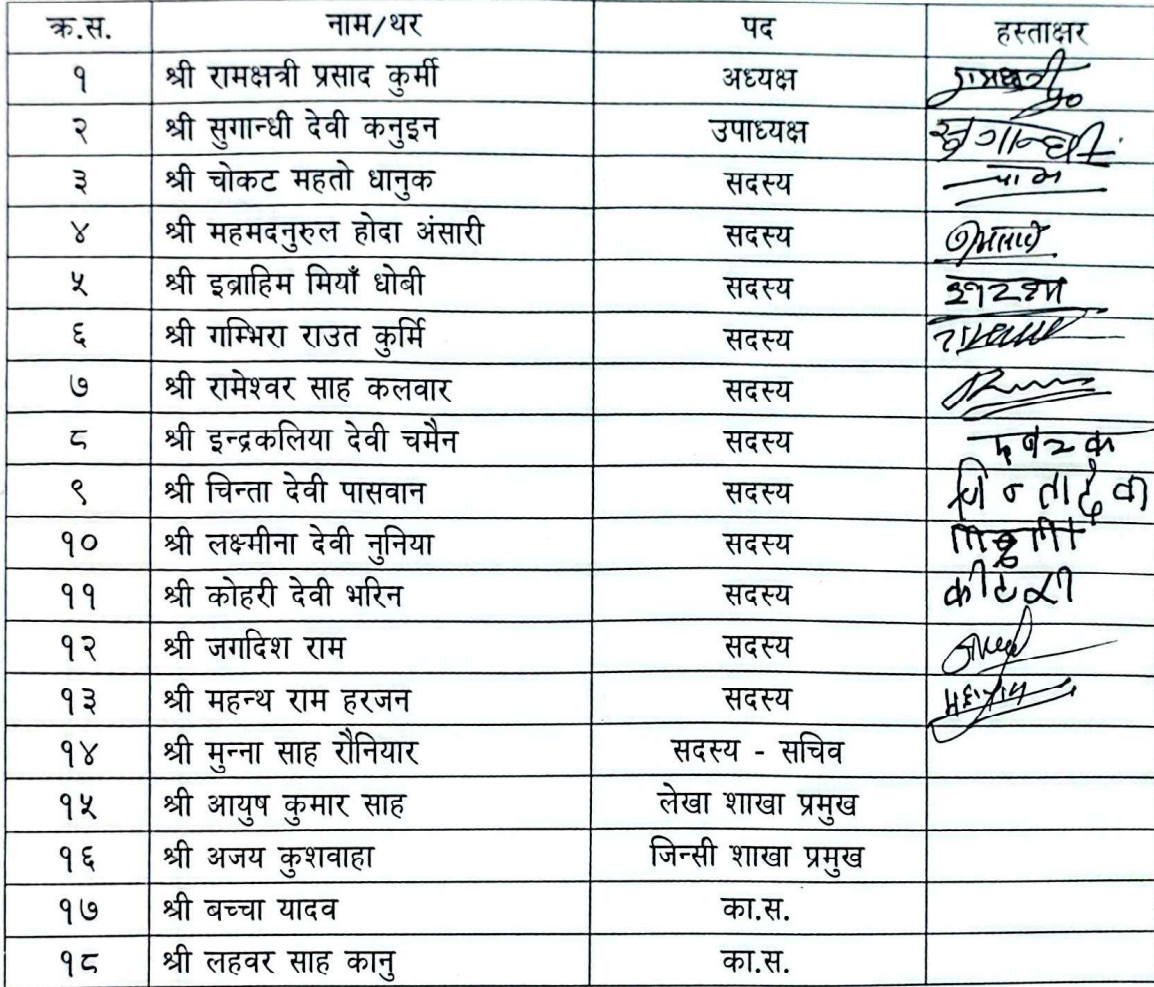 क्र.स. नाम/थर पद हस्ताक्षर
१ श्री रामक्षत्री प्रसाद कुर्मी अध्यक्ष
२ श्री सुगान्धी देवी कनुइन उपाध्यक्ष सुगान्धी
३ श्री चोकट महतो धानुक सदस्य
४ श्री महमदनुरुल होदा अंसारी सदस्य
५ श्री इब्राहिम मियाँ धोबी सदस्य
६ श्री गम्भिरा राउत कुर्मि सदस्य
७ श्री रामेश्वर साह कलवार सदस्य
८ श्री इन्द्रकलिया देवी चमैन सदस्य
९ श्री चिन्ता देवी पासवान सदस्य
१० श्री लक्ष्मीना देवी नुनिया सदस्य
११ श्री कोहरी देवी भरिन सदस्य
१२ श्री जगदिश राम सदस्य
१३ श्री महन्थ राम हरजन सदस्य
१४ श्री मुन्ना साह रौनियार सदस्य - सचिव
१५ श्री आयुष कुमार साह लेखा शाखा प्रमुख
१६ श्री अजय कुशवाहा जिन्सी शाखा प्रमुख
१७ श्री बच्चा यादव का.स.
१८ श्री लहवर साह कानु का.स.